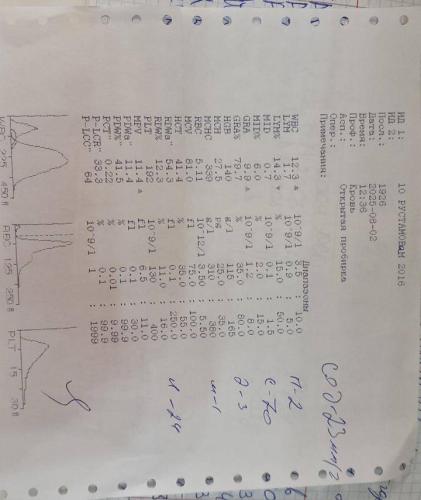 ИД 1: 10 РУСТАМОВОМ 2016
ИД 2:
Посл.: 1926
Дата: 2025-08-02
Время: 12:36
Проф.: Кровь
Асп.: Открытая пробирка
Опер.:
Примечания:
Диапазоны
WBC 12.3 ▲ 10^9/l 3.5 : 10.0
LYM 1.7 10^9/l 0.9 : 5.0
LYM% 14.3 ▼ % 15.0 : 50.0
MID 0.7 10^9/l 0.1 : 1.5
MID% 6.0 % 2.0 : 15.0
GRA 9.9 ▲ 10^9/l 1.2 : 8.0
GRA% 79.7 % 35.0 : 80.0
HGB 140 g/l 115 : 165
MCH 27.5 pg 25.0 : 35.0
MCHC 339 g/l 310 : 380
RBC 5.11 10^12/l 3.50 : 5.50
MCV 81.0 fl 75.0 : 100.0
HCT 41.4 % 35.0 : 55.0
RDWa 54.3 fl 0.1 : 250.0
RDW% 12.3 % 11.0 : 16.0
PLT 192 10^9/l 130 : 400
MPV 11.4 ▲ fl 6.5 : 11.0
PDWa 11.4 fl 0.1 : 30.0
PDW% 41.5 % 0.1 : 99.9
PCT 0.22 % 0.01 : 9.99
P-LCR 33.3 % 0.1 : 99.9
P-LCC 64 10^9/l 1 : 1999
WBC 225 450 fl
RBC 125 250 fl
PLT 15 30 fl
СОЭ-23 мм/ч
П-2
С-70
Э-3
М-1
Л-24